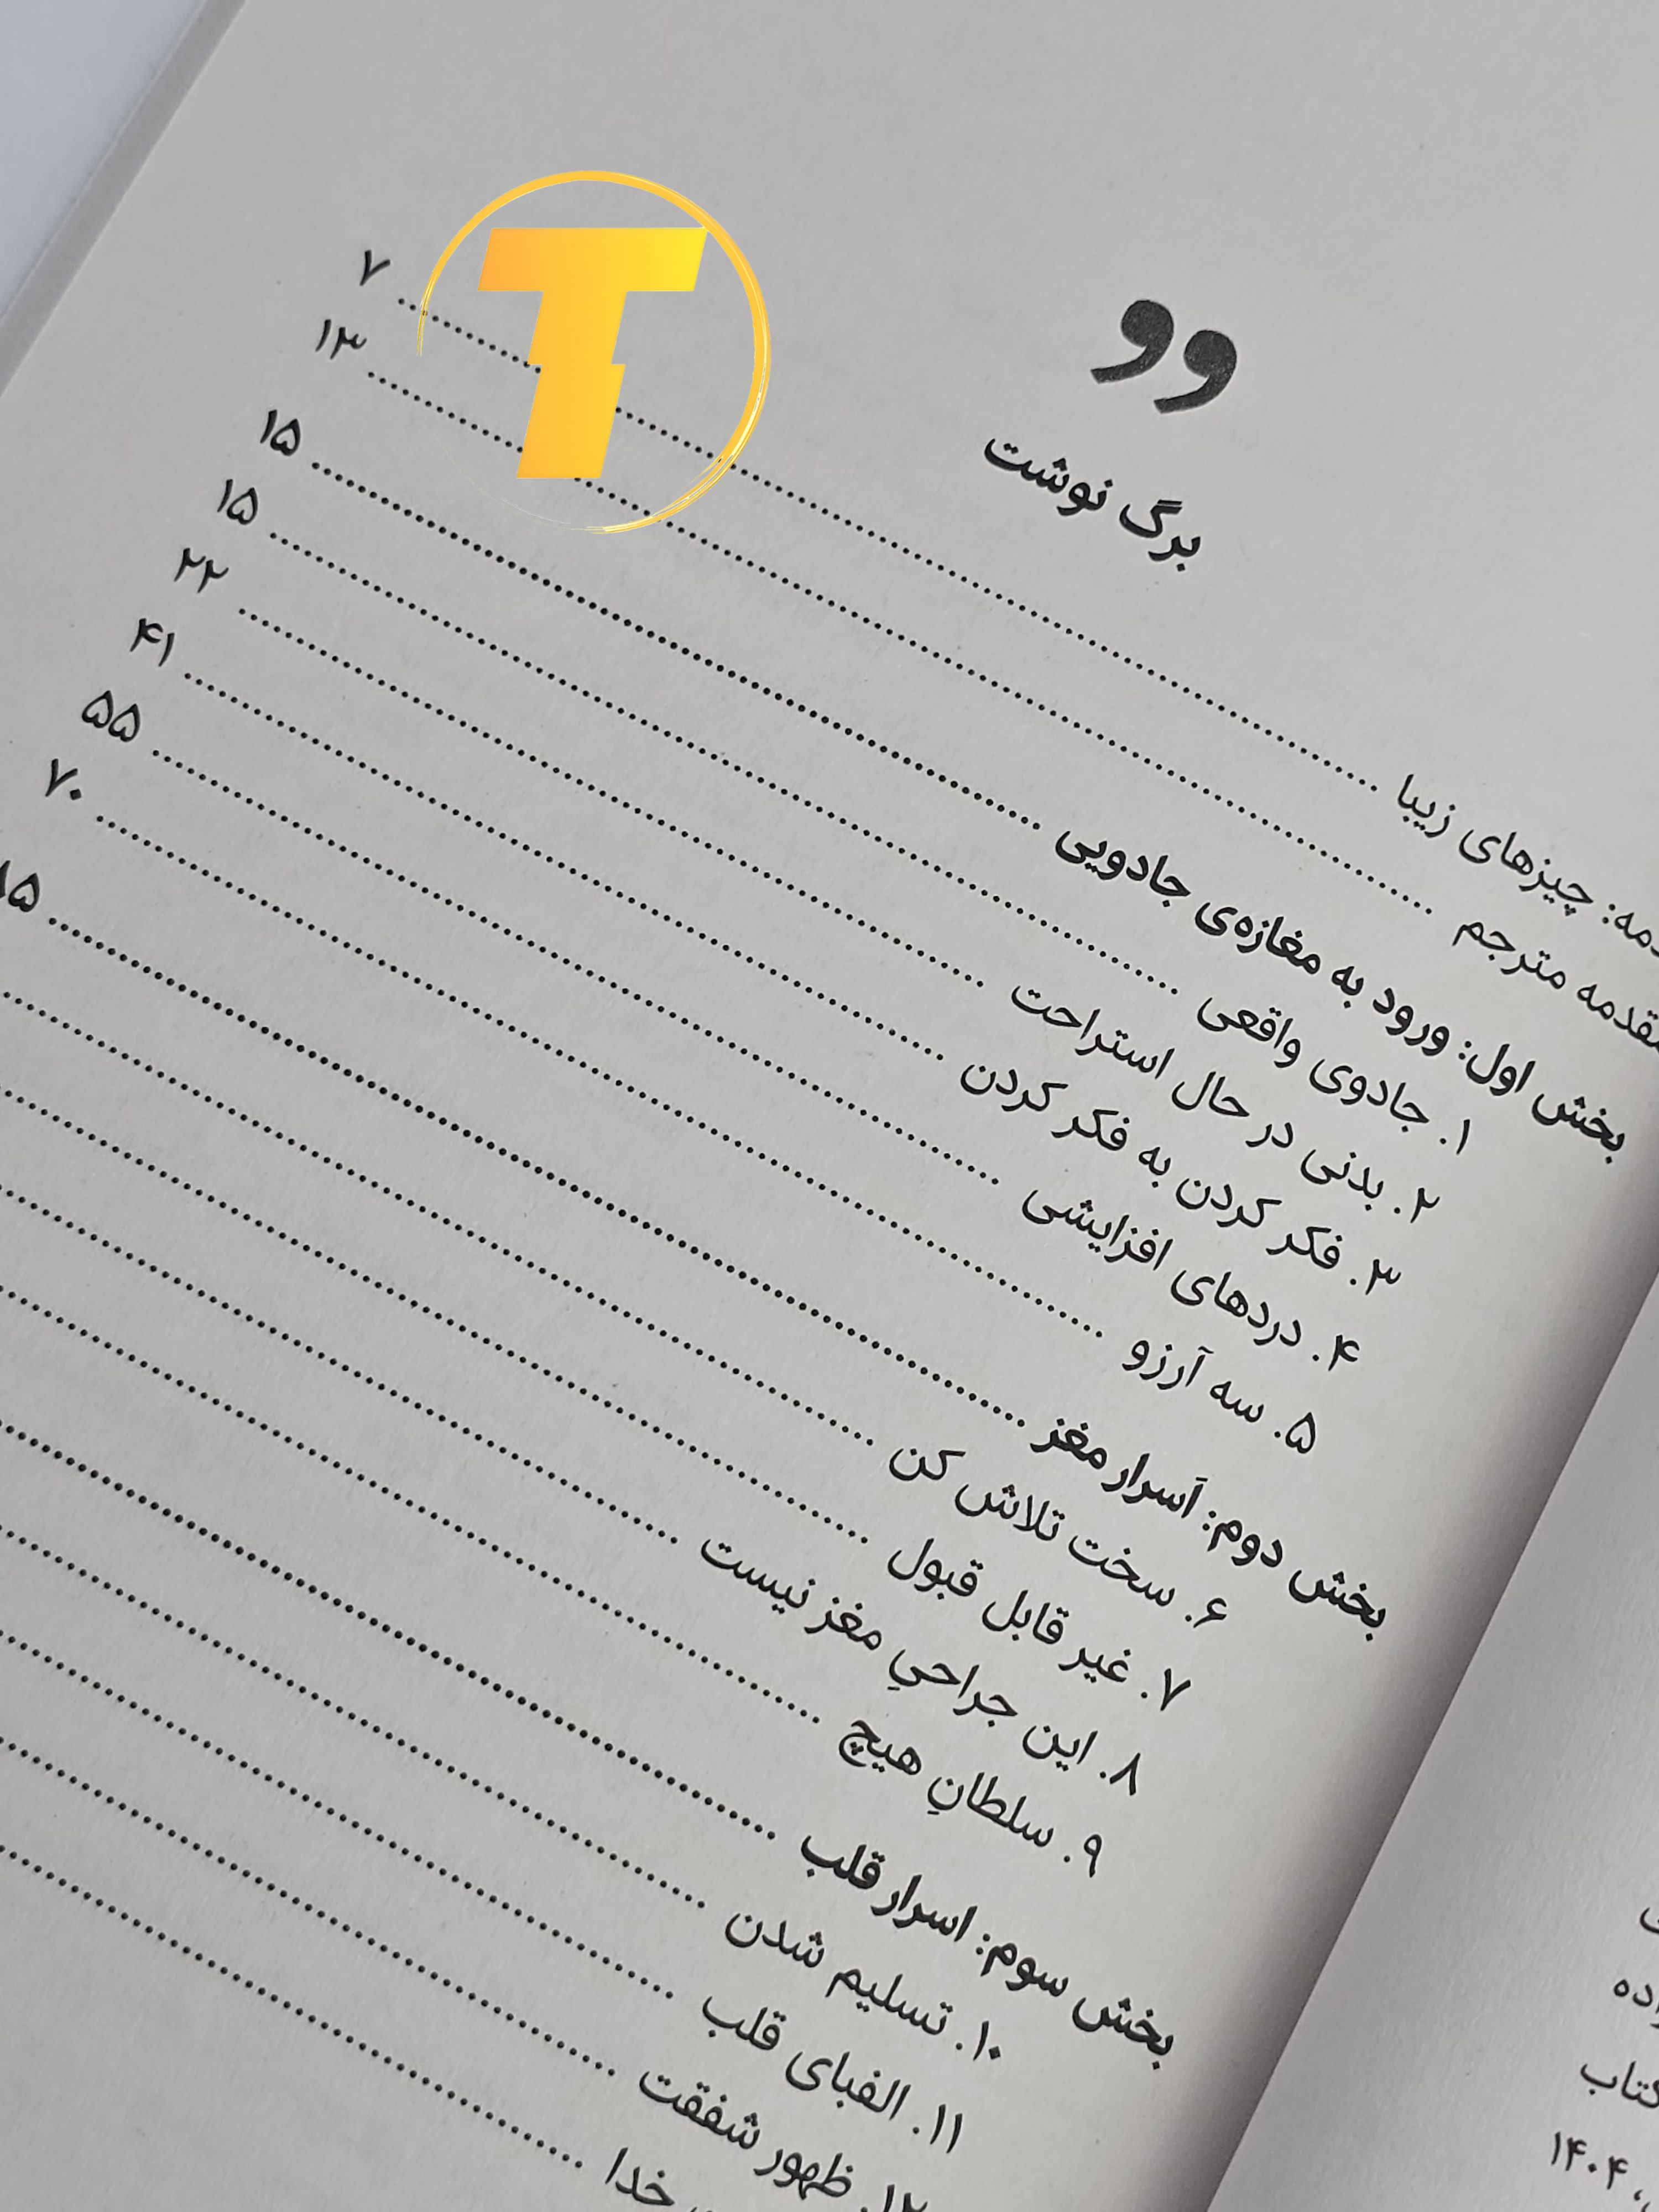 وو
برگ نوشت
چیزهای زیبا ۷
مقدمه مترجم ۱۳
بخش اول: ورود به مغازه‌ی جادویی ۱۵
۱. جادوی واقعی ۱۵
۲. بدنی در حال استراحت ۲۲
۳. فکر کردن به فکر کردن ۴۱
۴. دردهای افزایشی ۵۵
۵. سه آرزو ۷۰
بخش دوم: آسرار مغز
۶. سخت تلاش کن
۷. غیر قابل قبول
۸. این جراحیِ مغز نیست
۹. سلطانِ هیچ
بخش سوم: اسرار قلب
۱۰. تسلیم شدن
۱۱. الفبای قلب
۱۲. ظهور شفقت
خدا
کتاب
۱۴۰۴
T